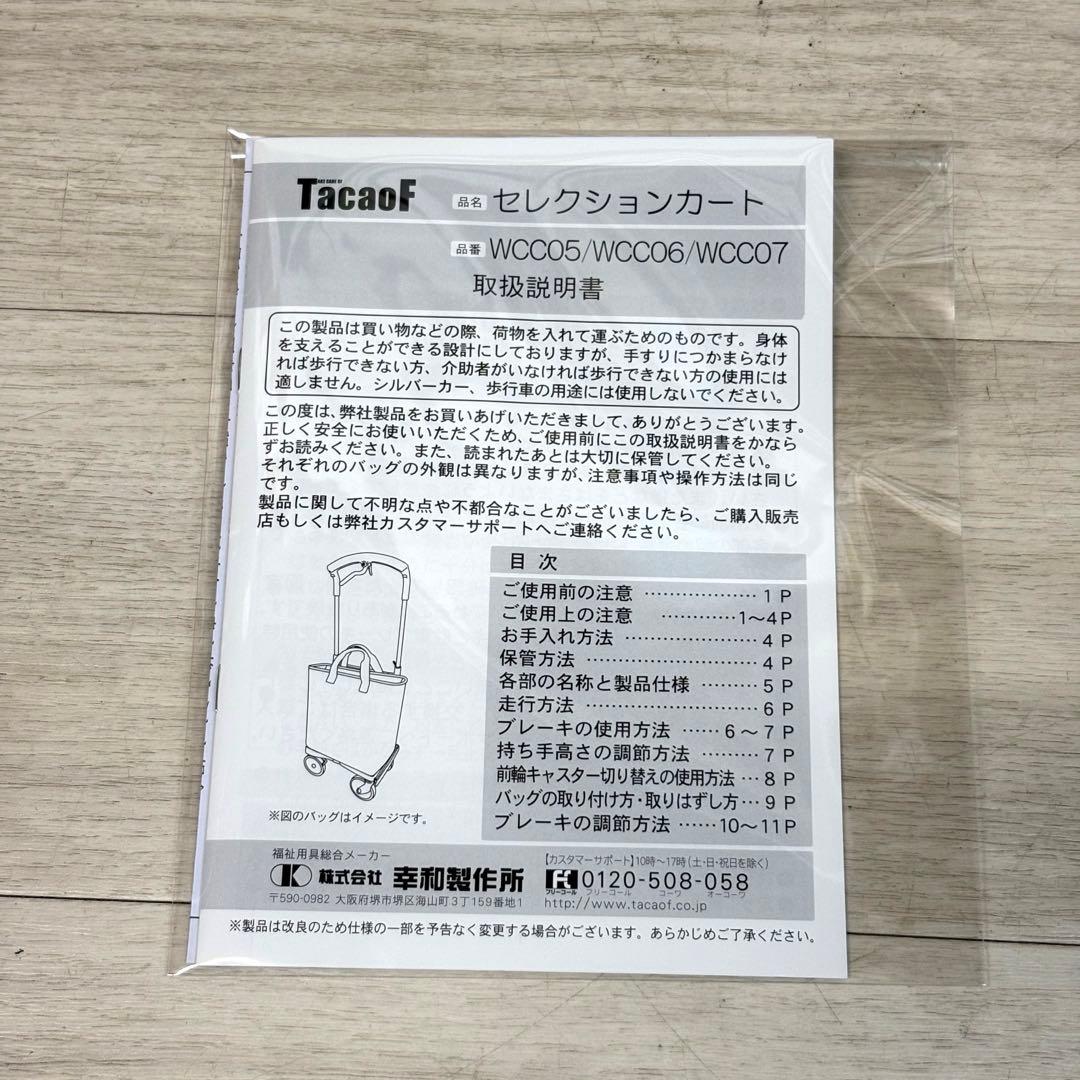 TAKE CARE OF
TacaoF 品名 セレクションカート
品番 WCC05/WCC06/WCC07
取扱説明書
この製品は買い物などの際、荷物を入れて運ぶためのものです。身体
を支えることができる設計にしておりますが、手すりにつかまらなけ
れば歩行できない方、介助者がいなければ歩行できない方の使用には
適しません。シルバーカー、歩行車の用途には使用しないでください。
この度は、弊社製品をお買いあげいただきまして、ありがとうございます。
正しく安全にお使いいただくため、ご使用前にこの取扱説明書をかなら
ずお読みください。また、読まれたあとは大切に保管してください。
それぞれのバッグの外観は異なりますが、注意事項や操作方法は同じ
です。
製品に関して不明な点や不都合なことがございましたら、ご購入販売
店もしくは弊社カスタマーサポートへご連絡ください。
目 次
ご使用前の注意 ………………1 P
ご使用上の注意 …………1〜4P
お手入れ方法 …………………4 P
保管方法 ………………………4 P
各部の名称と製品仕様 ………5 P
走行方法 ………………………6 P
ブレーキの使用方法 ……6〜7P
持ち手高さの調節方法 ………7 P
前輪キャスター切り替えの使用方法…8 P
バッグの取り付け方・取りはずし方…9 P
ブレーキの調節方法 ……10〜11P
※図のバッグはイメージです。
福祉用具総合メーカー
株式会社 幸和製作所
〒590-0982 大阪府堺市堺区海山町3丁159番地1
【カスタマーサポート】10時〜17時(土・日・祝日を除く)
フリーコール 0120-508-058
フリーコール コーワ オーコーワ
http://www.tacaof.co.jp
※製品は改良のため仕様の一部を予告なく変更する場合がございます。あらかじめご了承ください。